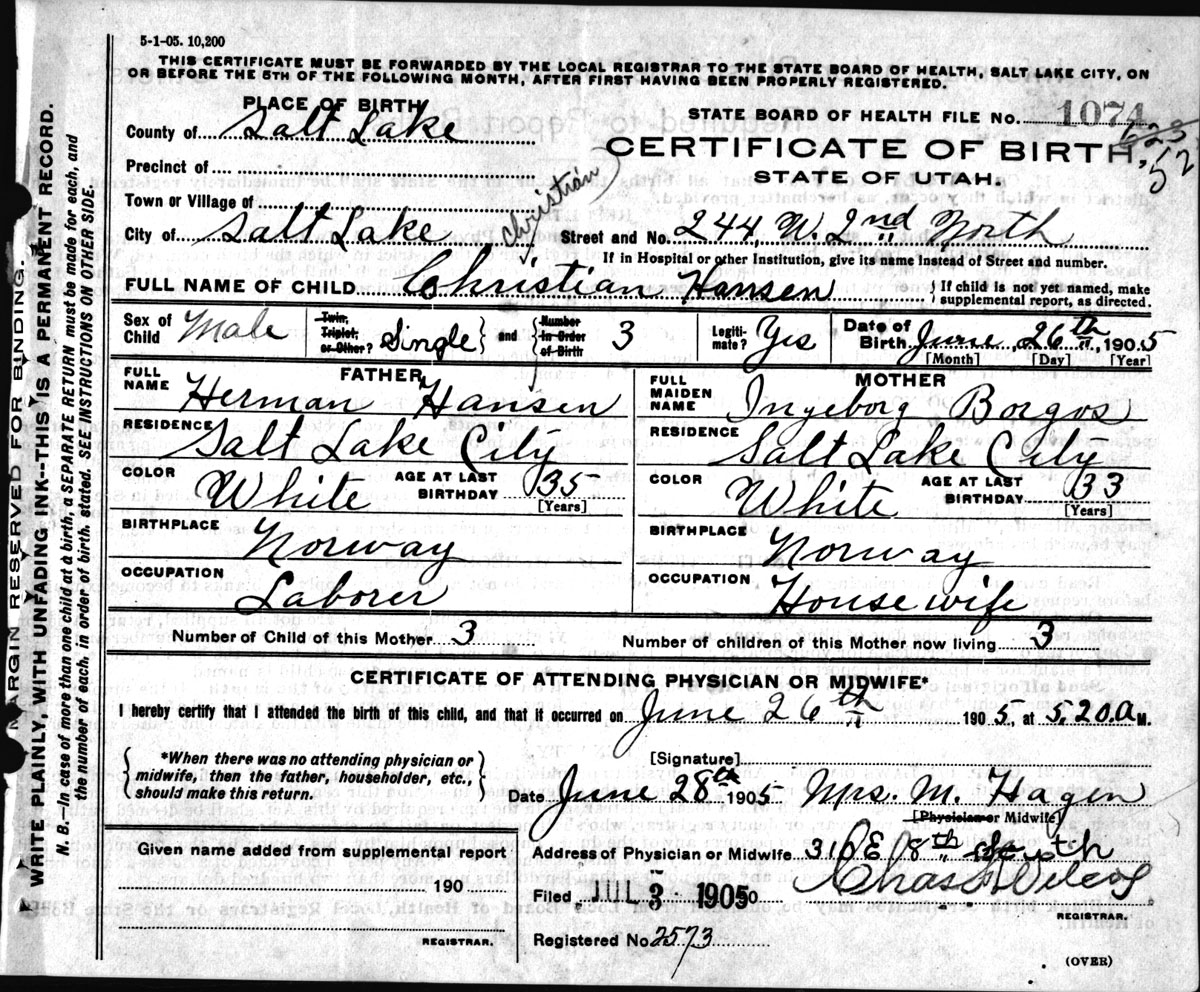 5-1-05. 10,200
THIS CERTIFICATE MUST BE FORWARDED BY THE LOCAL REGISTRAR TO THE STATE BOARD OF HEALTH, SALT LAKE CITY, ON
OR BEFORE THE 5TH OF THE FOLLOWING MONTH, AFTER FIRST HAVING BEEN PROPERLY REGISTERED.
PLACE OF BIRTH
County of Salt Lake
Precinct of
Town or Village of
City of Salt Lake
Christian
STATE BOARD OF HEALTH FILE No. 1074
52
CERTIFICATE OF BIRTH,
STATE OF UTAH.
Street and No. 244, W. 2nd North
If in Hospital or other Institution, give its name instead of Street and number.
FULL NAME OF CHILD Christian Hansen
If child is not yet named, make
supplemental report, as directed.
Sex of Child Male
Twin, Triplet, or Other? Single and Number in Order of Birth 3
Legitimate? Yes
Date of Birth June, 26th, 1905
[Month] [Day] [Year]
FATHER
FULL NAME Herman Hansen
RESIDENCE Salt Lake City
COLOR White AGE AT LAST BIRTHDAY 35 [Years]
BIRTHPLACE Norway
OCCUPATION Laborer
MOTHER
FULL MAIDEN NAME Ingeborg Borgos
RESIDENCE Salt Lake City
COLOR White AGE AT LAST BIRTHDAY 33 [Years]
BIRTHPLACE Norway
OCCUPATION Housewife
Number of Child of this Mother 3 Number of children of this Mother now living 3
CERTIFICATE OF ATTENDING PHYSICIAN OR MIDWIFE*
I hereby certify that I attended the birth of this child, and that it occurred on June 26th 1905, at 5.20.a M.
*When there was no attending physician or
midwife, then the father, householder, etc.,
should make this return.
[Signature]
Date June 28th 1905 Mrs. M. Hagen
[Physician or Midwife]
Given name added from supplemental report
190
REGISTRAR.
Address of Physician or Midwife 310 E 8th South
Filed JUL 3 1905
REGISTRAR.
Registered No. 2573
(OVER)
MARGIN RESERVED FOR BINDING.
WRITE PLAINLY, WITH UNFADING INK--THIS IS A PERMANENT RECORD.
N. B.--In case of more than one child at a birth, a SEPARATE RETURN must be made for each, and
the number of each, in order of birth, stated. SEE INSTRUCTIONS ON OTHER SIDE.